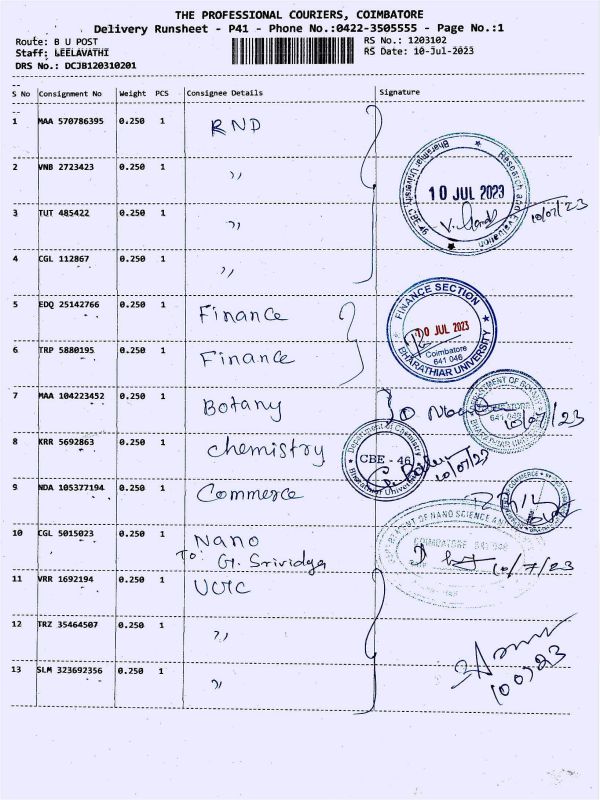 THE PROFESSIONAL COURIERS, COIMBATORE
Delivery Runsheet - P41 - Phone No.:0422-3505555 - Page No.:1
Route: B U POST RS No.: 1203102
Staff: LEELAVATHI RS Date: 10-Jul-2023
DRS No.: DCJB120310201
S No Consignment No Weight PCS Consignee Details Signature
1 MAA 570786395 0.250 1 RND
2 VNB 2723423 0.250 1 ,,
3 TUT 485422 0.250 1 ,,
4 CGL 112867 0.250 1 ,,
Bharathiar University, CBE-46
Research and Evaluation
10 JUL 2023
10/07/23
5 EDQ 25142766 0.250 1 Finance
6 TRP 5880195 0.250 1 Finance
FINANCE SECTION
10 JUL 2023
Coimbatore
641 046
BHARATHIAR UNIVERSITY
7 MAA 104223452 0.250 1 Botany
DEPARTMENT OF BOTANY
641 046
BHARATHIAR UNIVERSITY
10/07/23
8 KRR 5692863 0.250 1 chemistry
Department of Chemistry
CBE - 46
Bharathiar University
10/07/23
9 NDA 105377194 0.250 1 Commerce
COMMERCE
10 CGL 5015023 0.250 1 Nano
To: G. Srividya
DEPARTMENT OF NANO SCIENCE AND
COIMBATORE 641 046
10/7/23
11 VRR 1692194 0.250 1
12 TRZ 35464507 0.250 1 ,,
13 SLM 323692356 0.250 1 ,,